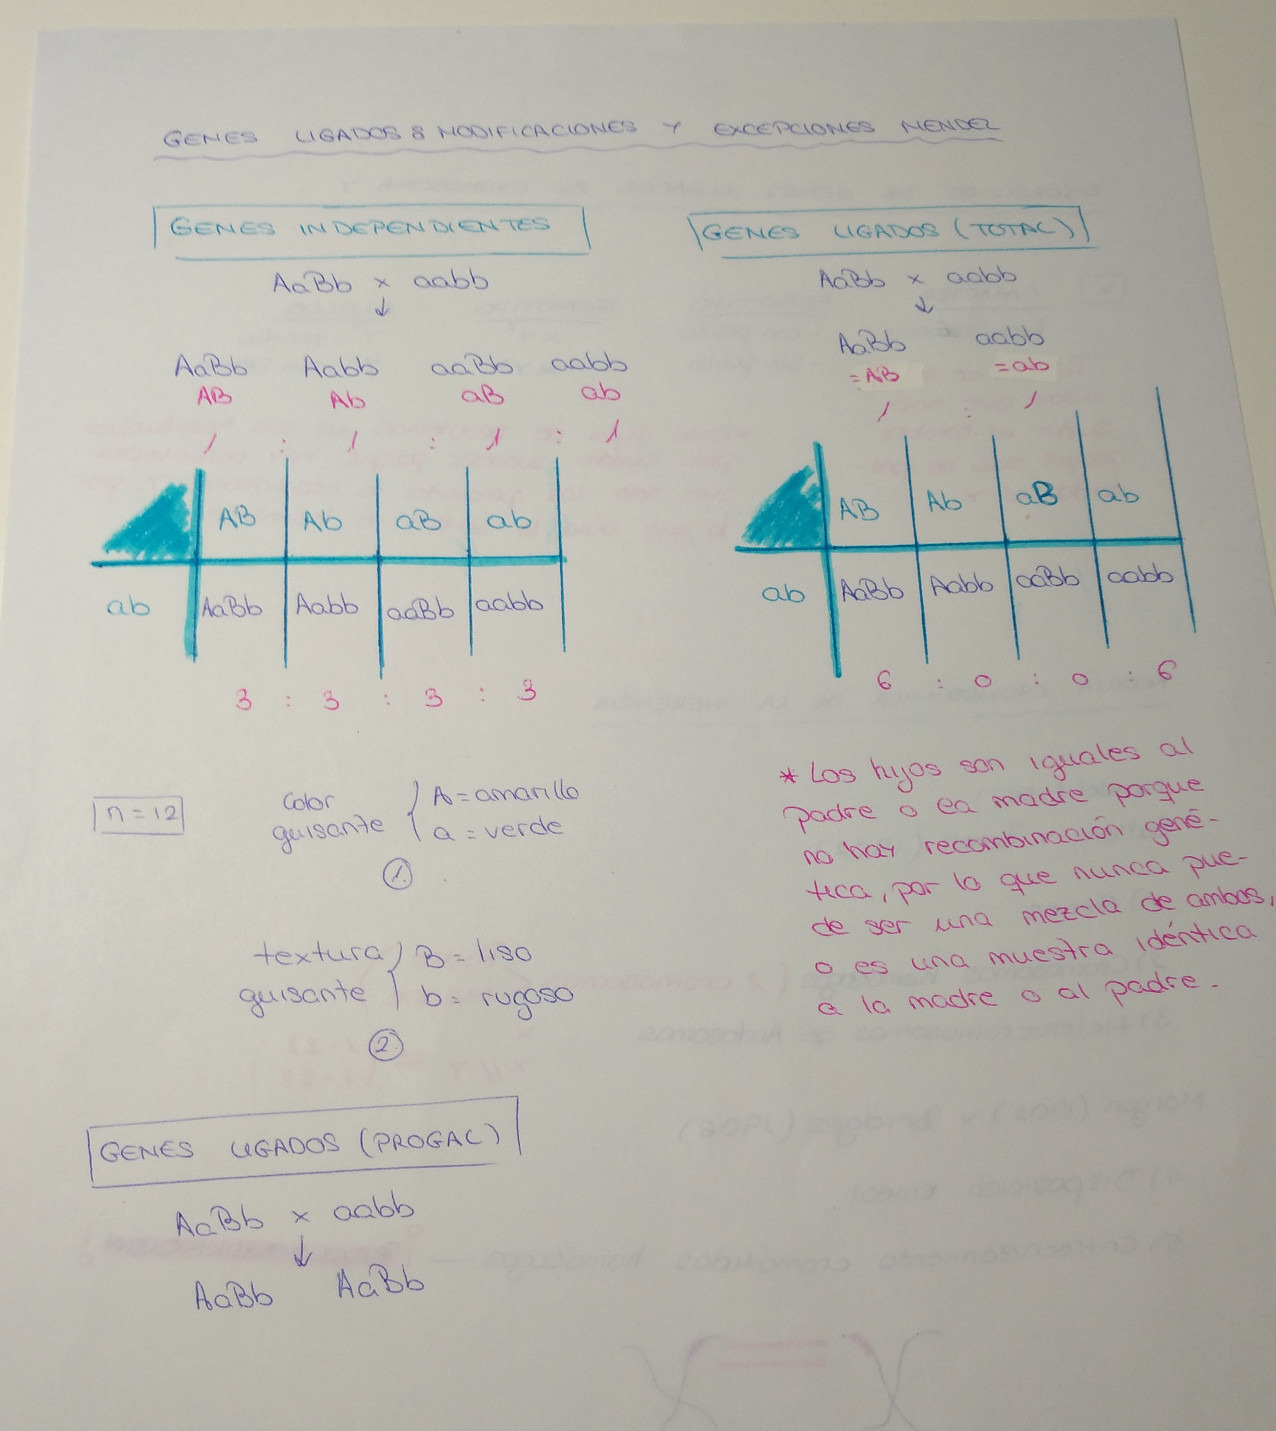 GENES LIGADOS 8 MODIFICACIONES Y EXCEPCIONES MENDEL
GENES INDEPENDIENTES
AaBb x aabb
↓
AaBb Aabb aaBb aabb
AB Ab aB ab
1 : 1 : 1 : 1
AB Ab aB ab
ab AaBb Aabb aaBb aabb
3 : 3 : 3 : 3
GENES LIGADOS (TOTAL)
AaBb x aabb
↓
AaBb aabb
=AB =ab
1 : 1
AB Ab aB ab
ab AaBb Aabb aaBb aabb
6 : 0 : 0 : 6
n=12
Color
guisante
A=amarillo
a=verde
1.
textura
guisante
B=liso
b=rugoso
2.
* Los hijos son iguales al
padre o ea madre porque
no hay recombinación gené-
tica, por lo que nunca pue-
de ser una mezcla de ambos,
o es una muestra idéntica
a la madre o al padre.
GENES LIGADOS (PROGAC)
AaBb x aabb
↓
AaBb AaBb